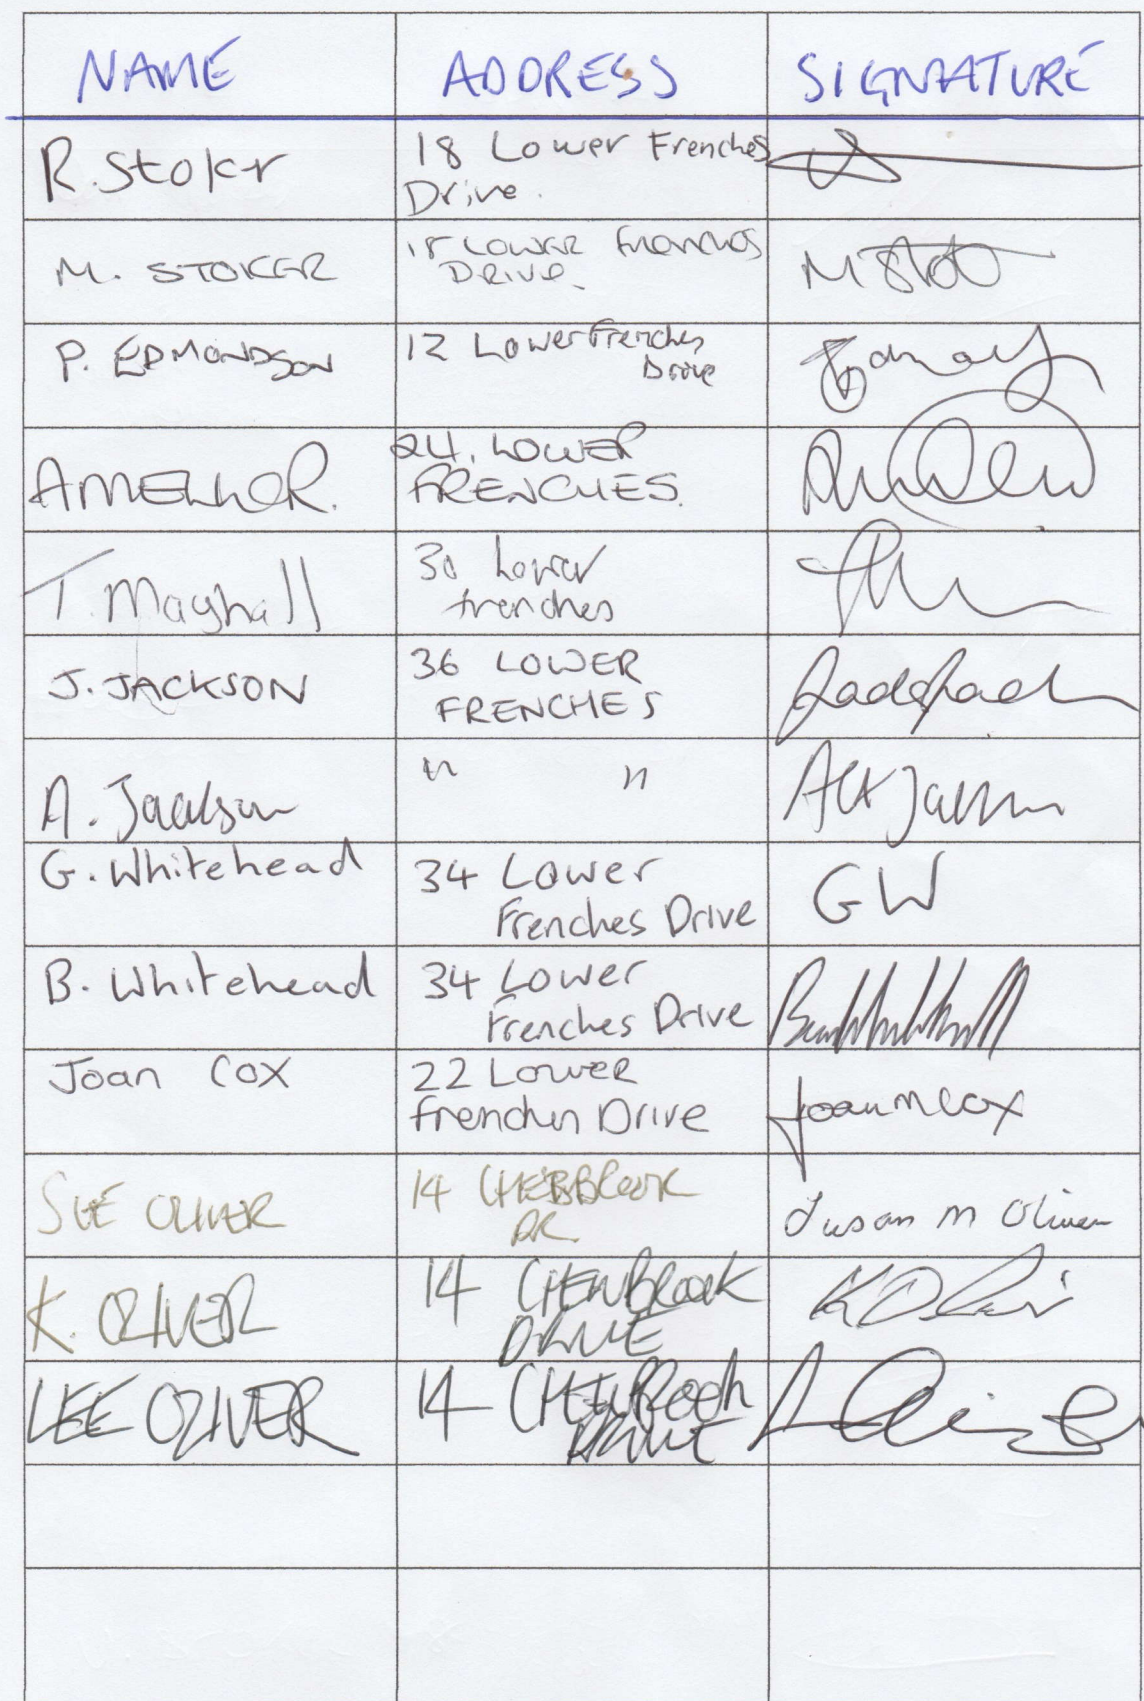 NAME ADDRESS SIGNATURE
R. Stokr 18 Lower Frenches
Drive.
M. STOKER 18 LOWER Frenches
DRIVE.
P. EDMONDSON 12 Lower Frenches
Drive
A MELLOR. 24. LOWER
FRENCHES.
T. Mayhall 30 Lower
frenches
J. JACKSON 36 LOWER
FRENCHES
A. Jackson " "
G. Whitehead 34 Lower GW
Frenches Drive
B. Whitehead 34 Lower
Frenches Drive
Joan Cox 22 Lower
Frenches Drive Joan M Cox
SUE OLIVER 14 CHEWBROOK
DR. Susan M Oliver
K. OLIVER 14 CHEWBROOK
DRIVE
LEE OLIVER 14 CHEWBROOK
DRIVE